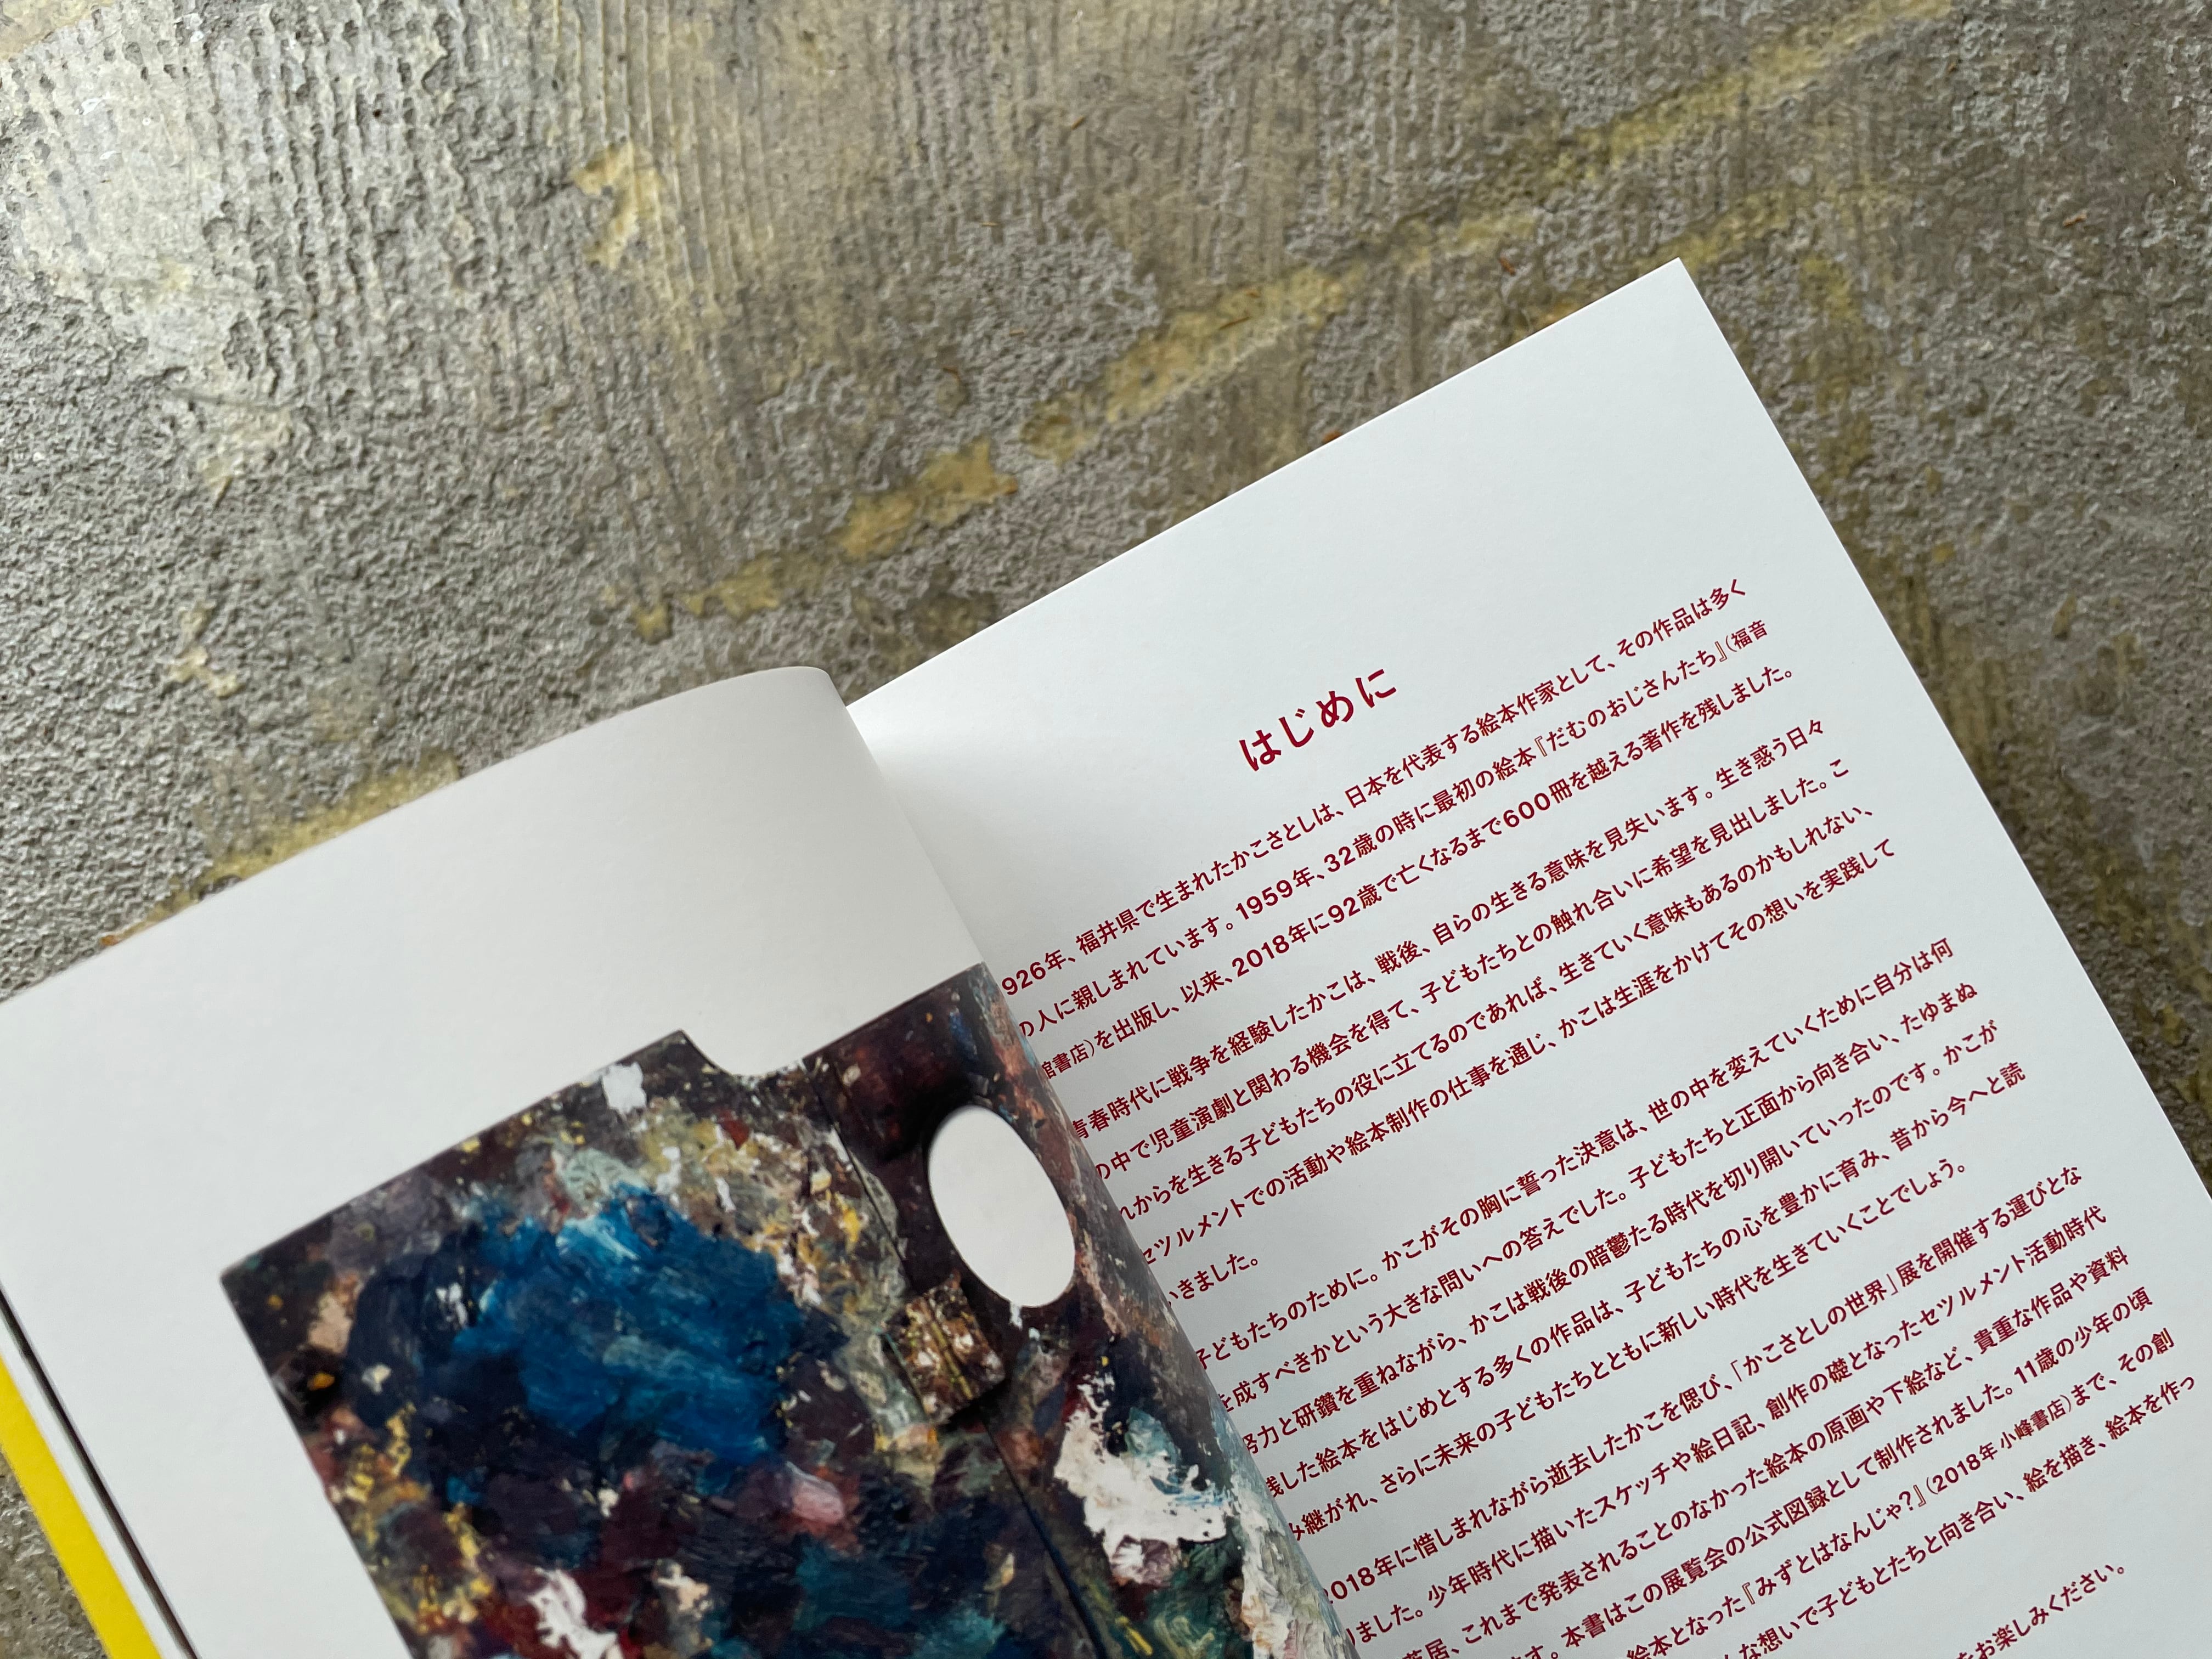 はじめに
926年、福井県で生まれたかこさとしは、日本を代表する絵本作家として、その作品は多く
の人に親しまれています。1959年、32歳の時に最初の絵本『だむのおじさんたち』（福音
館書店）を出版し、以来、2018年に92歳で亡くなるまで600冊を越える著作を残しました。
青春時代に戦争を経験したかこは、戦後、自らの生きる意味を見失います。生き惑う日々
の中で児童演劇と関わる機会を得て、子どもたちとの触れ合いに希望を見出しました。こ
れからを生きる子どもたちの役に立てるのであれば、生きていく意味もあるのかもしれない、
セツルメントでの活動や絵本制作の仕事を通じ、かこは生涯をかけてその想いを実践して
いきました。
子どもたちのために。かこがその胸に誓った決意は、世の中を変えていくために自分は何
を成すべきかという大きな問いへの答えでした。子どもたちと正面から向き合い、たゆまぬ
努力と研鑽を重ねながら、かこは戦後の暗鬱たる時代を切り開いていったのです。かこが
残した絵本をはじめとする多くの作品は、子どもたちの心を豊かに育み、昔から今へと読
み継がれ、さらに未来の子どもたちとともに新しい時代を生きていくことでしょう。
2018年に惜しまれながら逝去したかこを偲び、「かこさとしの世界」展を開催する運びとな
りました。少年時代に描いたスケッチや絵日記、創作の礎となったセツルメント活動時代
芝居、これまで発表されることのなかった絵本の原画や下絵など、貴重な作品や資料
す。本書はこの展覧会の公式図録として制作されました。11歳の少年の頃
絵本となった『みずとはなんじゃ？』（2018年 小峰書店）まで、その創
な想いで子どもとたちと向き合い、絵を描き、絵本を作っ
をお楽しみください。